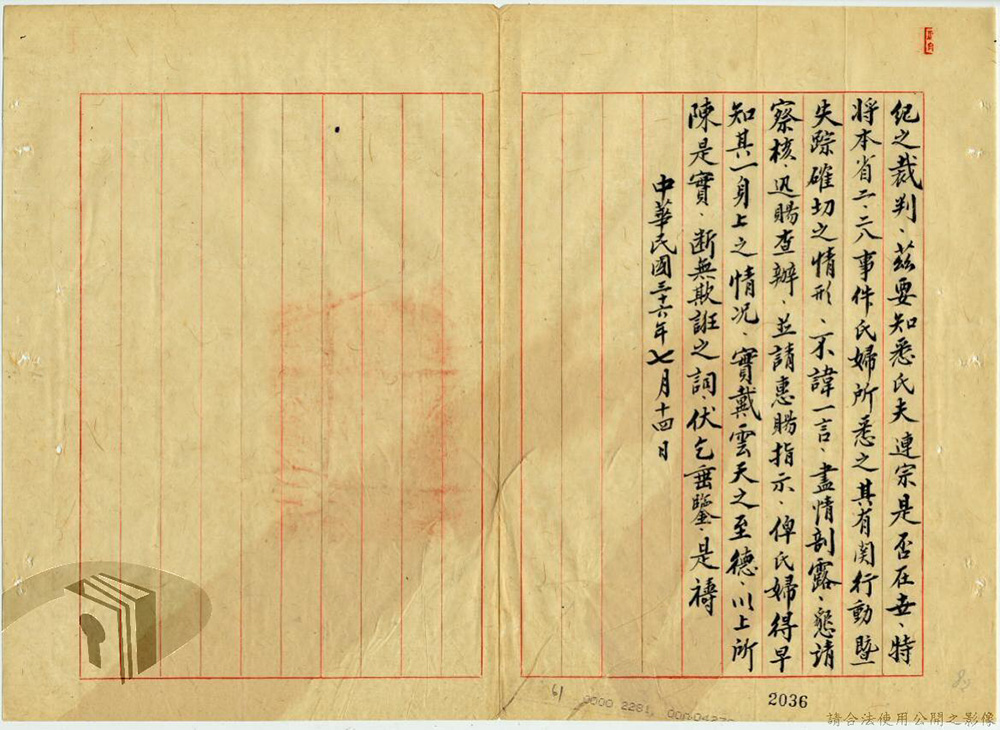 紀之裁判、茲要知悉氏夫連宗是否在世、特
将本省二、二八事件氏婦所悉之其有関行動暨
失踪確切之情形、不諱一言、盡情剖露、懇請
察核、迅賜查辦、並請惠賜指示、俾氏婦得早
知其一身上之情况、實戴雲天之至德、以上所
陳是實、断無欺誑之詞、伏乞垂鑒、是禱
中華民國三十六年七月十四日
61
2036
82
請合法使用公開之影像